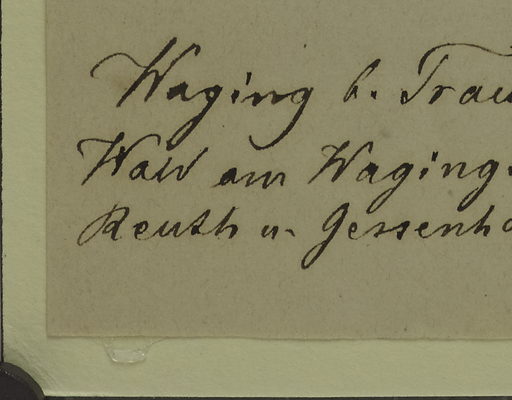 Waging b. Trau
Wald am Waging.
Reuth u. Gessenh